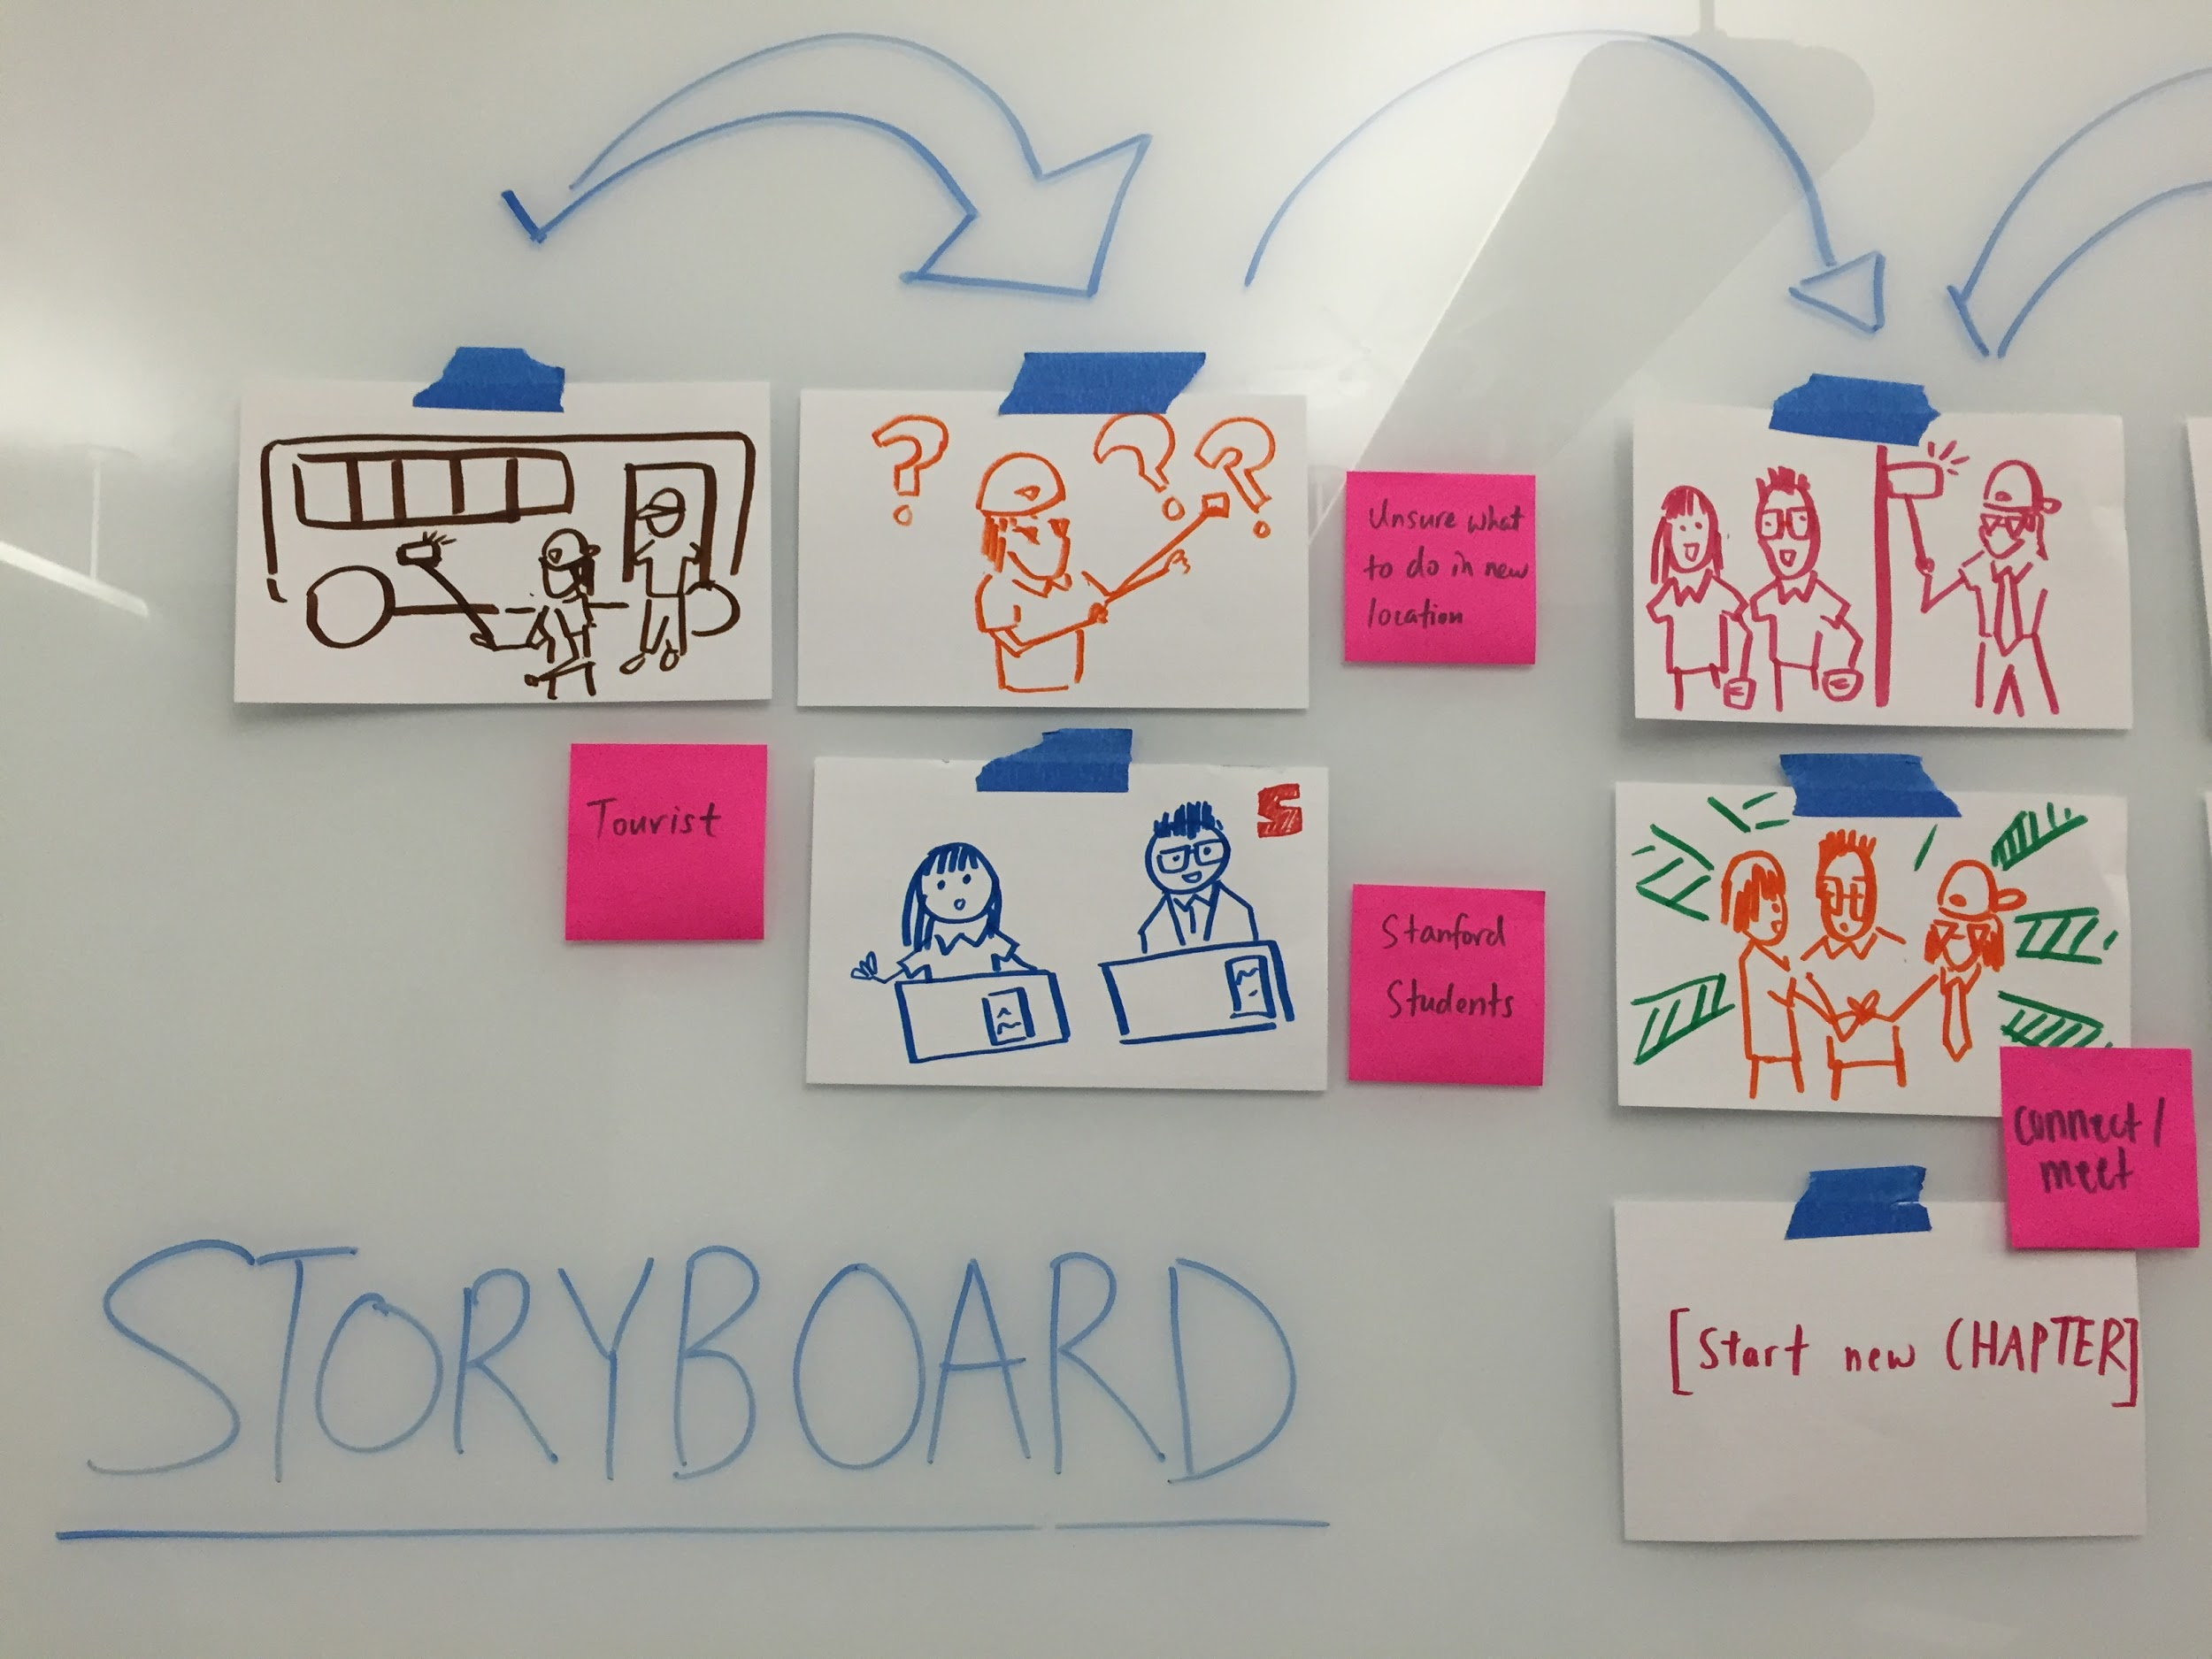 Unsure what
to do in new
location
Tourist
S
Stanford
Students
connect/
meet
[Start new CHAPTER]
STORYBOARD